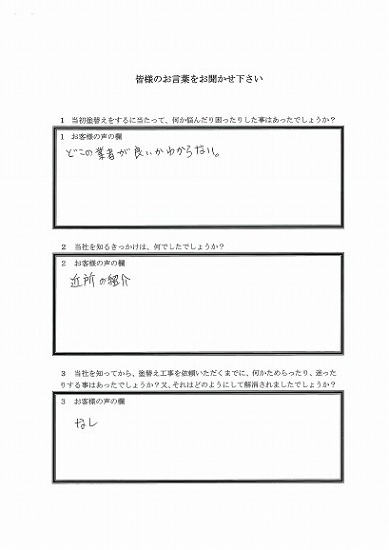 皆様のお言葉をお聞かせ下さい
1 当初塗替えをするに当たって、何か悩んだり困ったりした事はあったでしょうか?
1 お客様の声の欄
どこの業者が良いかわからない。
2 当社を知るきっかけは、何でしたでしょうか?
2 お客様の声の欄
近所の紹介
3 当社を知ってから、塗替え工事を依頼いただくまでに、何かためらったり、迷った
りする事はあったでしょうか?又、それはどのようにして解消されましたでしょうか?
3 お客様の声の欄
なし